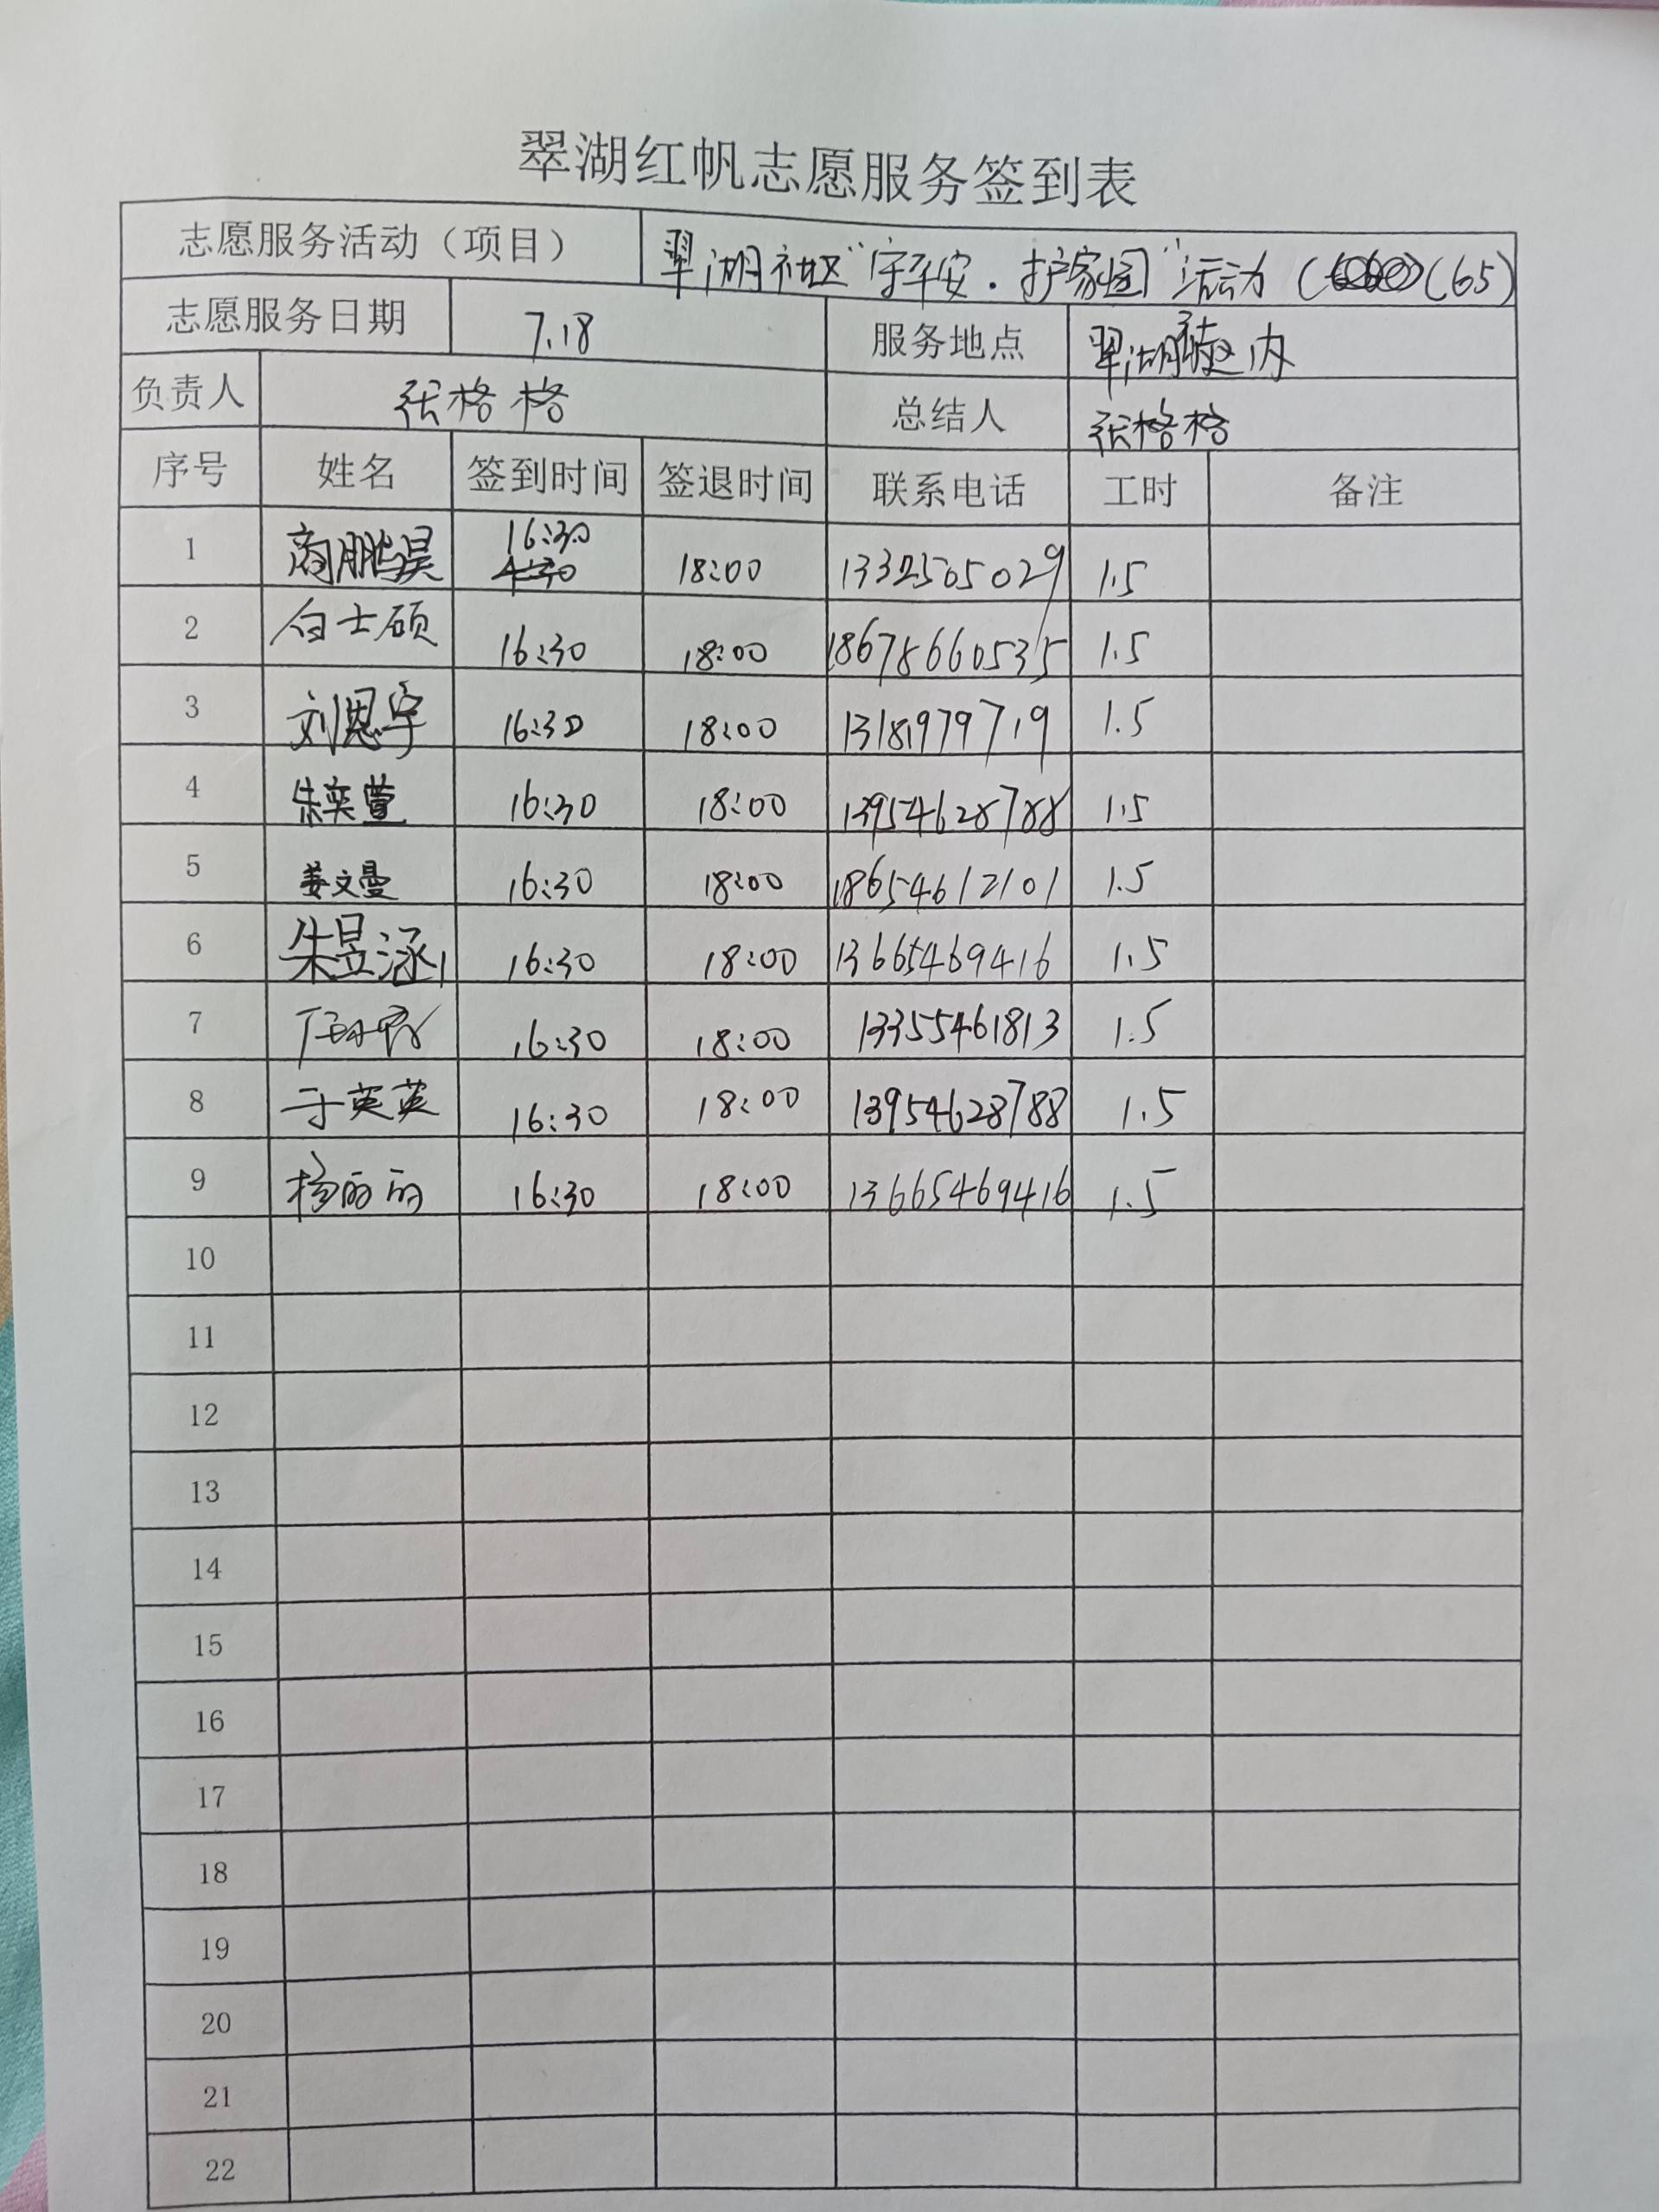 翠湖红帆志愿服务签到表
志愿服务活动（项目） 翠湖社区“守平安·护家园”活动 (65)
志愿服务日期 7.18 服务地点 翠湖社区内
负责人 张格格 总结人 张格格
序号 姓名 签到时间 签退时间 联系电话 工时 备注
1 商鹏昊 16:30 18:00 1332505029 1.5
2 白士硕 16:30 18:00 18678660535 1.5
3 刘恩宇 16:30 18:00 1318979719 1.5
4 朱奕萱 16:30 18:00 13954628788 1.5
5 姜文曼 16:30 18:00 18654612101 1.5
6 朱昱涵 16:30 18:00 13665469416 1.5
7 16:30 18:00 13355461813 1.5
8 于英英 16:30 18:00 13954628788 1.5
9 杨丽丽 16:30 18:00 13665469416 1.5
10
11
12
13
14
15
16
17
18
19
20
21
22